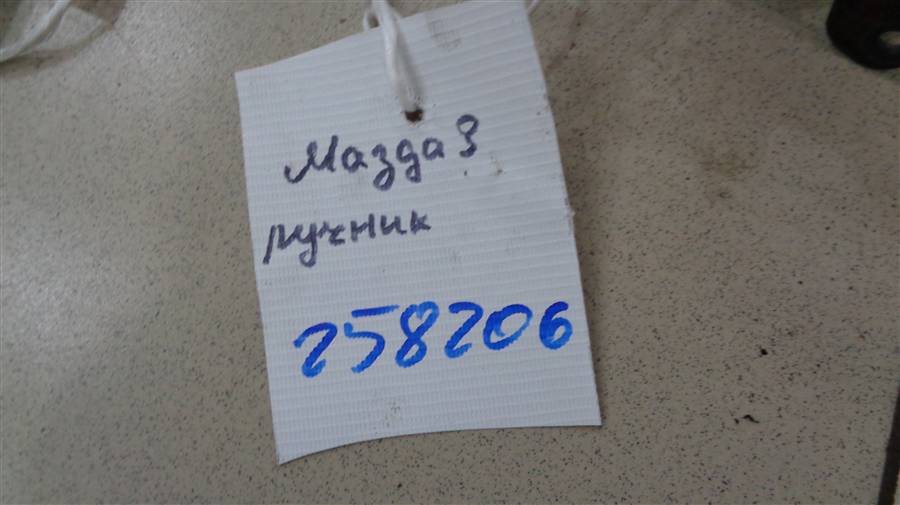 Мазда 3
ручник
258206